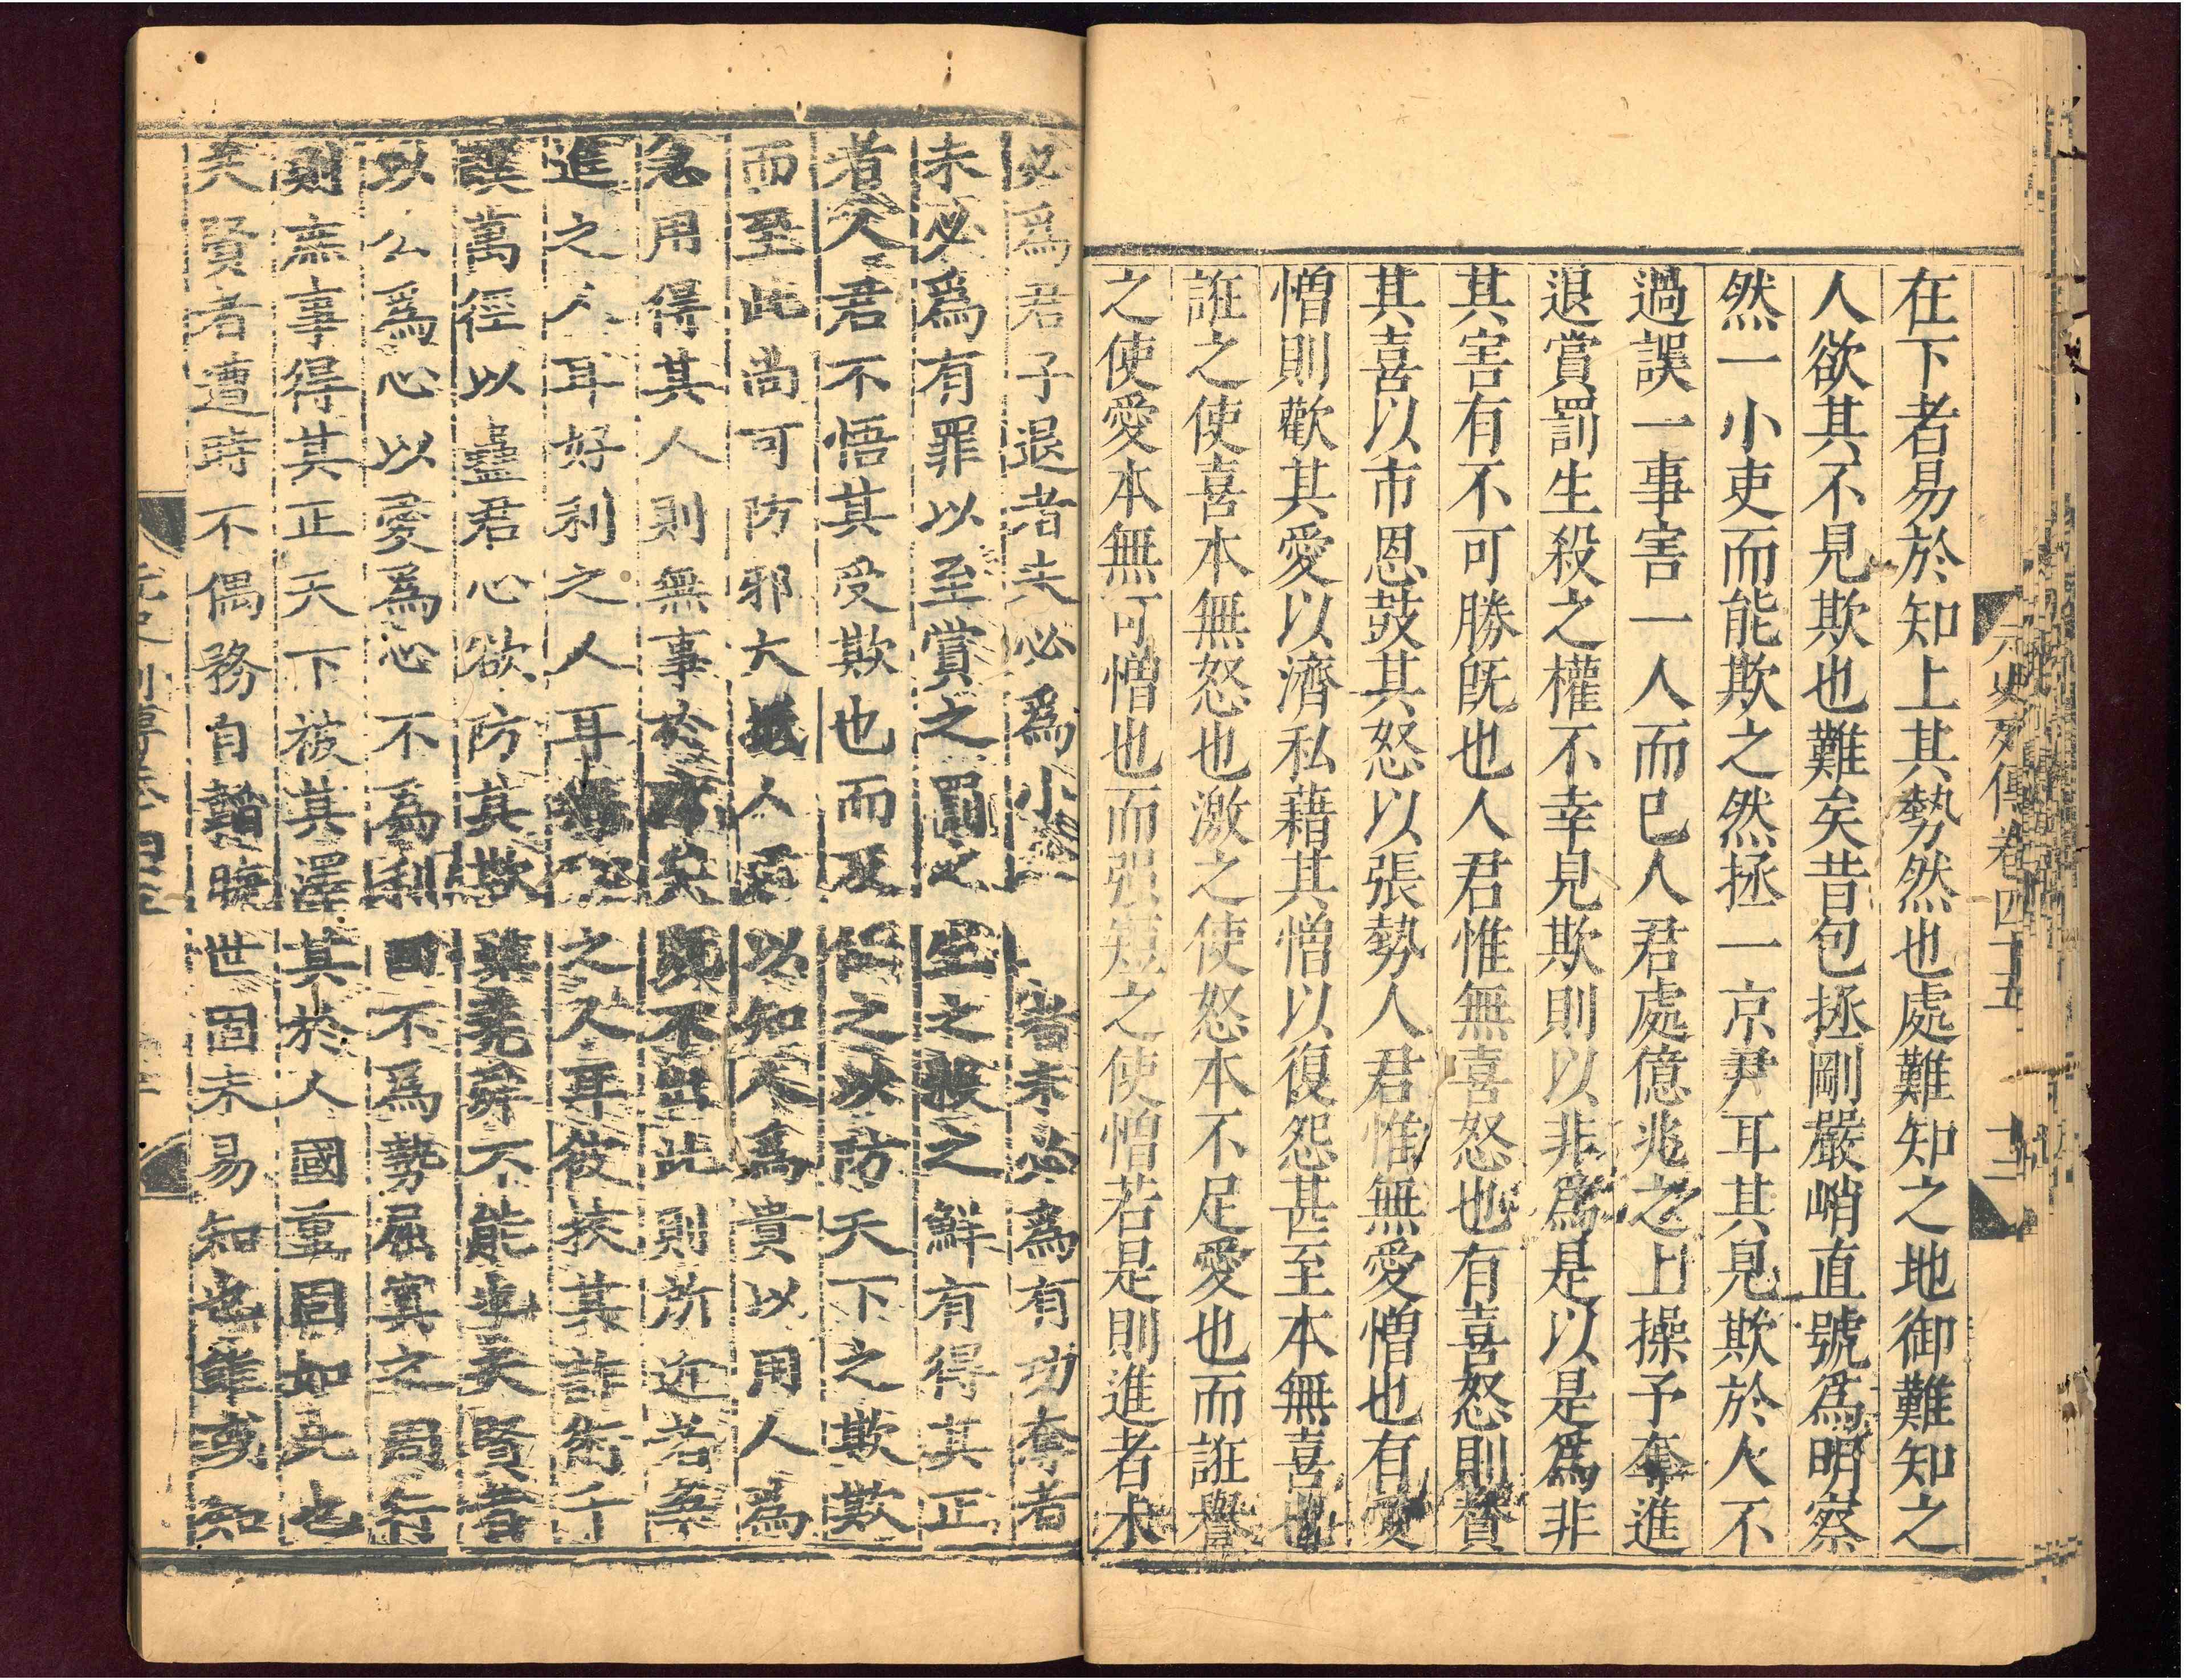 元史列傳卷四十五　十二
在下者易於知上其勢然也處難知之地御難知之
人欲其不見欺也難矣昔包拯剛嚴峭直號爲明察
然一小吏而能欺之然拯一京尹耳其見欺於人不
過誤一事害一人而已人君處億兆之上操予奪進
退賞罰生殺之權不幸見欺則以非爲是以是爲非
其害有不可勝旣也人君惟無喜怒也有喜怒則贊
其喜以市恩鼓其怒以張勢人君惟無愛憎也有愛
憎則歡其愛以濟私藉其憎以復怨甚至本無喜也
誑之使喜本無怒也激之使怒本不足愛也而誑譽
之使愛本無可憎也而强短之使憎若是則進者未
必爲君子退者未必爲小 者未必爲有功奪者
未必爲有罪以至賞之罰之生之殺之鮮有得其正
者人君不悟其受欺也而反 之以防天下之欺欺
而至此尚可防邪大抵人君以知人爲貴以用人爲
急用得其人則無事於防矣旣不出此則所近者爭
進之人耳好利之人耳無恥之人耳彼挾其詐術千
蹊萬徑以蠱君心欲防其欺雖堯舜不能也矣賢者
以公爲心以愛爲心不爲利回不爲勢屈寘之周行
則庶事得其正天下被其澤其於人國重固如此也
夫賢者遭時不偶務自韜晦世固未易知也雖或知
元史列傳卷四十五